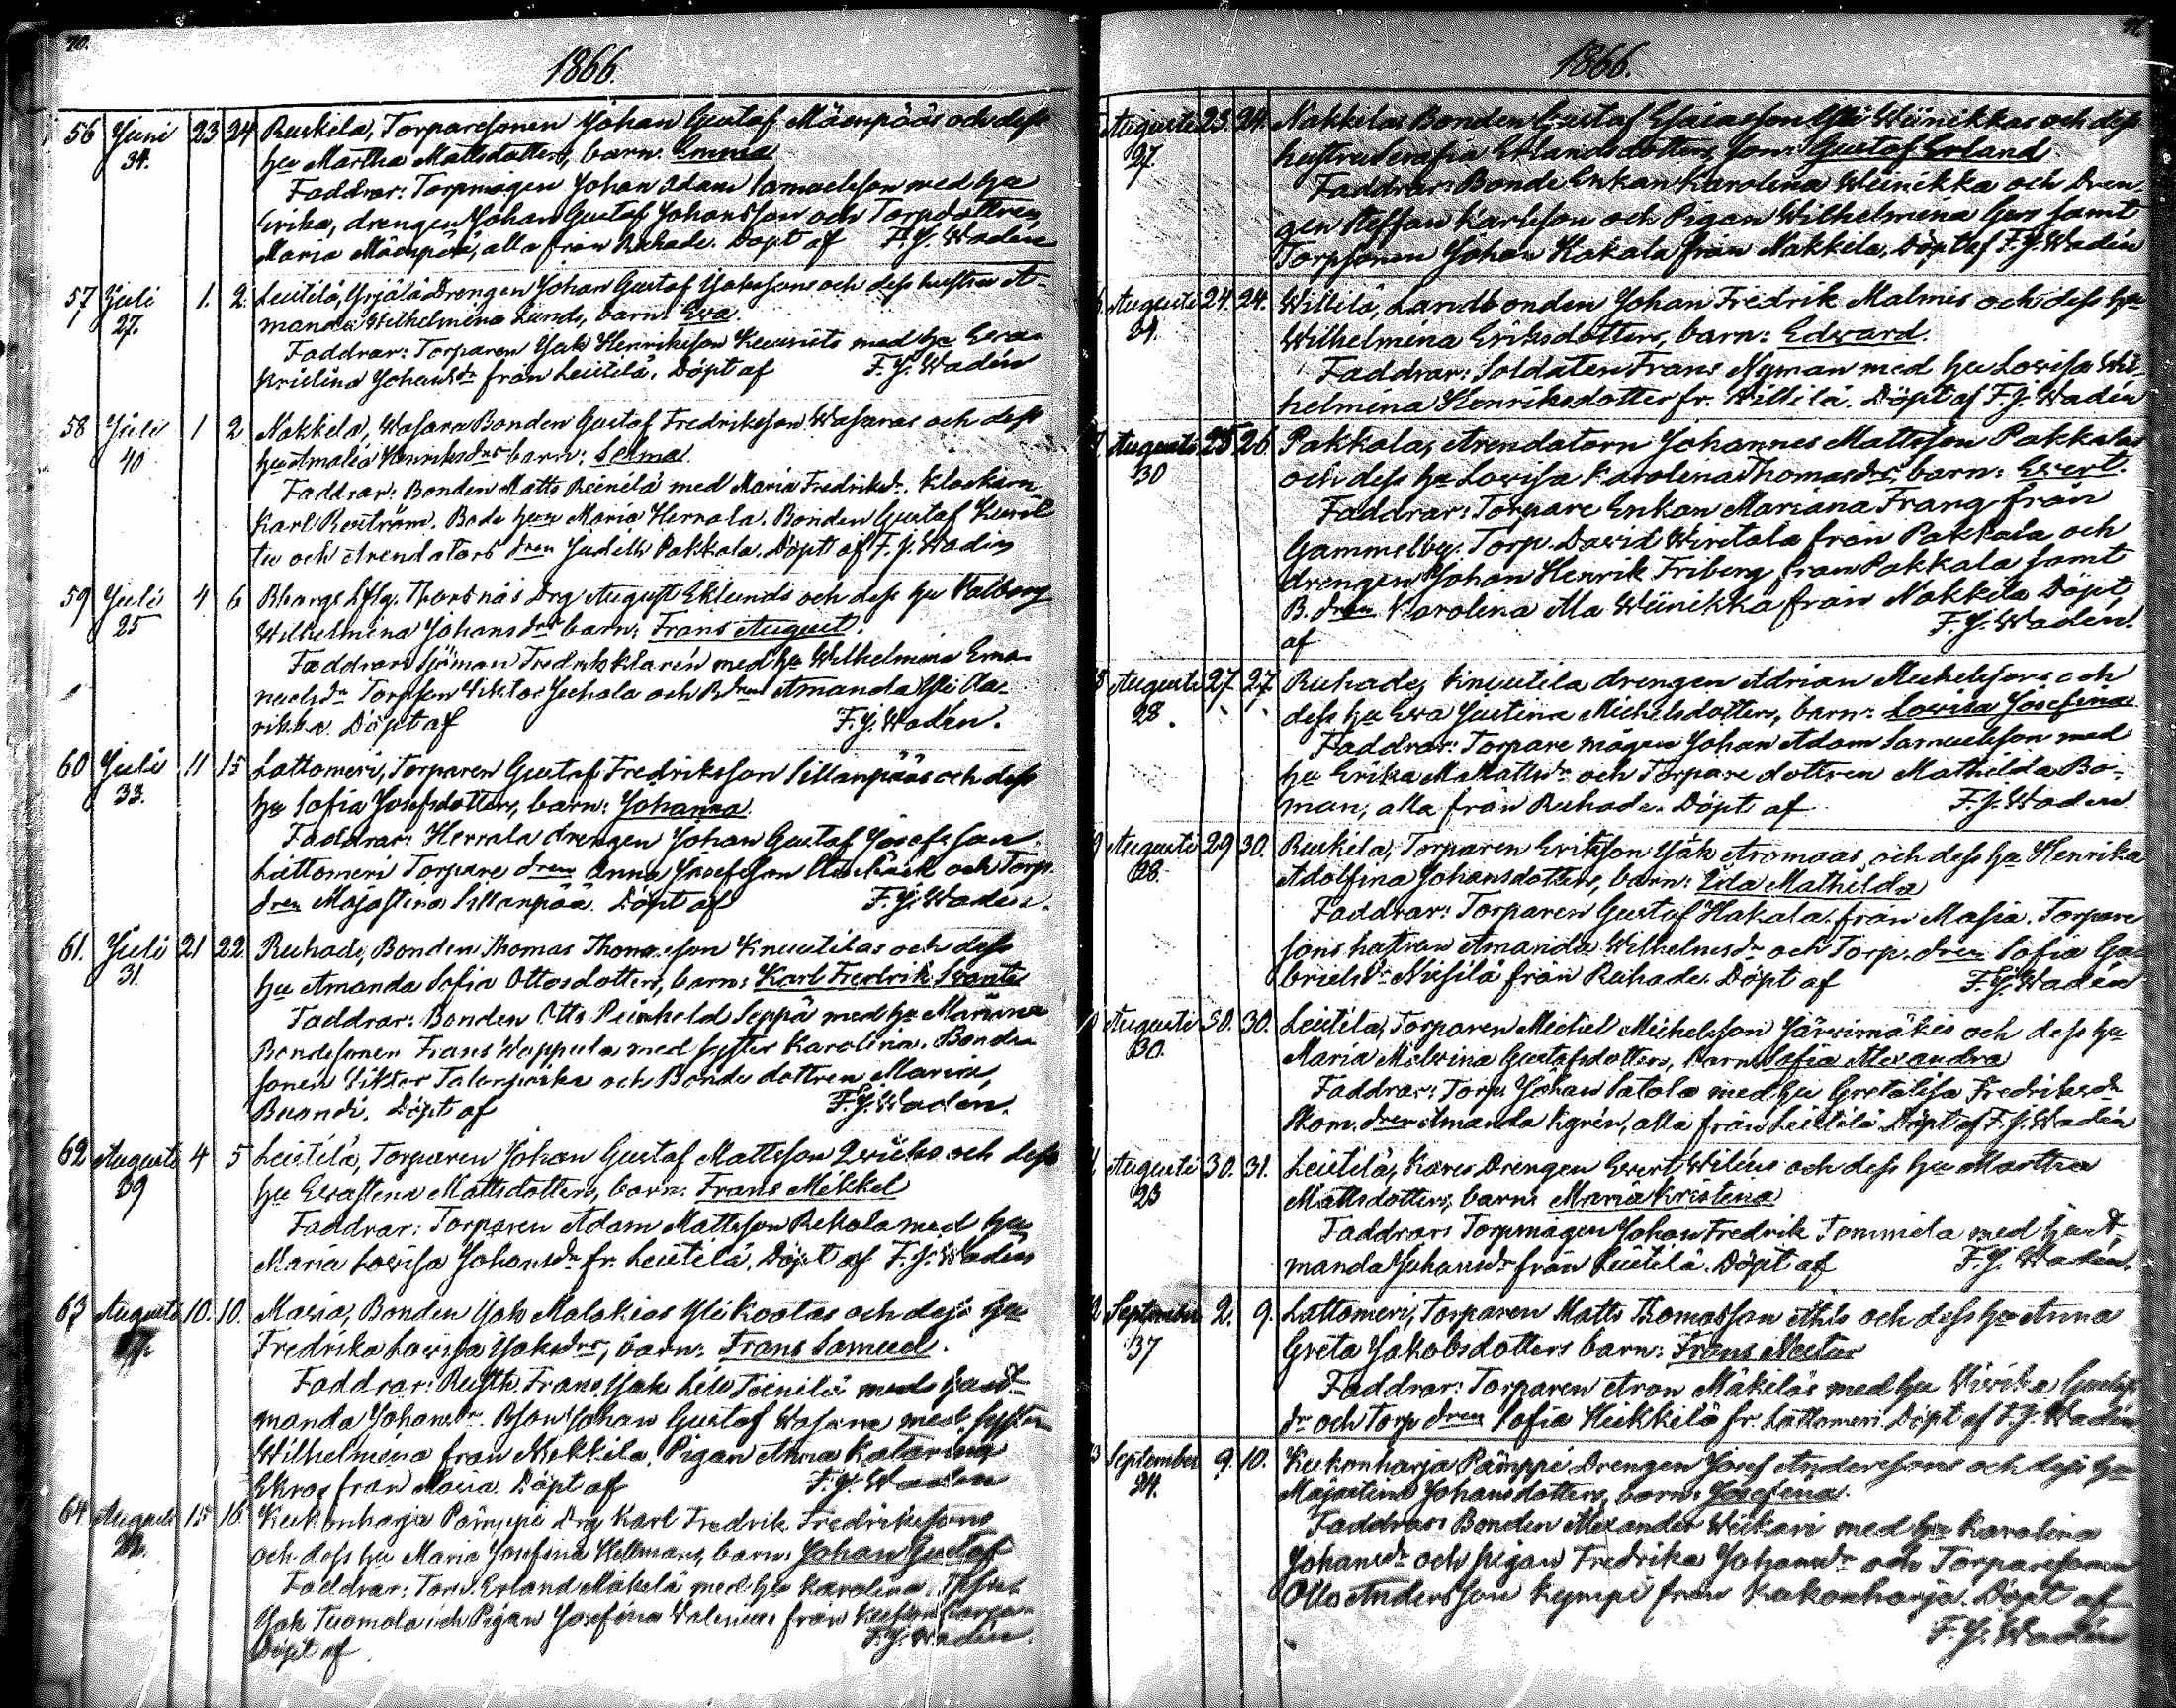 70.
1866.
56 Juni 23 24 Ruskila, Torparesonen Johan Gustaf Mäenpääs och dess
34. hu Martha Mattsdotters, barn: Emma
Faddrar: Torpmågen Johan Adam Samuelsson med hu
Erika, drengen Johan Gustaf Johansson och Torpdottren,
Maria Mäenpää, alla från Ruhade. Döpt af F. J. Wadén
57 Juli 1. 2. Leistilä, Yrjälä Drengen Johan Gustaf Jakssons och dess hustru A-
27. manda Wilhelmina Lunds, barn: Eva.
Faddrar: Torparen Jak Henriksson med hu Eva
Kristina Johansdr från Leistilä. Döpt af F. J. Wadén
58 Juli 1 2 Nakkila, Wasara Bonden Gustaf Fredriksson Wasaras och dess
40 hu Amalia Henriksdrs barn: Selma.
Faddrar: Bonden Matts med Maria Fredriksdr. Klockarn
Karl Boström. Bode hun Maria Herrala. Bonden Gustaf
och Arendators dren Judith Pakkala. Döpt af F. J. Wadén
59 Juli 4 6 Thorsnäs Drg August Eklunds och dess hu Walborg
25 Wilhelmina Johansdrs barn: Frans August.
Faddrar: Sjöman Fredrik Klarén med hu Wilhelmina Ema-
nuelsdr Torpson Viktor Juhola och Bdren Amanda Yli
Döpt af F. J. Wadén.
60 Juli 11 15 Lattomeri, Torparen Gustaf Fredriksson Sillanpääs och dess
33. hu Sofia Josefsdotters, barn: Johanna.
Faddrar: Herrala drengen Johan Gustaf Josefsson.
Lattomeri Torpare dren Anna och Torp.
dren Majastina Sillanpää. Döpt af F. J. Wadén.
61. Juli 21 22 Ruhade, Bonden Thomas Thomasson Knuutilas och dess
31. hu Amanda Sofia Ottosdotters, barn: Karl Fredrik Svante
Faddrar: Bonden Otto Reinhold Seppä med hu Mariana
Bondesonen Frans Wappula med syster Karolina. Bonde
sonen Viktor och Bonde dottren Maria,
Döpt af F. J. Wadén.
62 Augusti 4 5 Leistilä, Torparen Johan Gustaf Mattsson och dess
39 hu Evastina Mattsdotters, barn: Frans Mikkel
Faddrar: Torparen Adam Mattsson Rekola med hu
Maria Lovisa Johansdr fr. Leistilä. Döpt af F. J. Wadén
63 Augusti 10. 10. Masia, Bonden Jak Malakias Yli Kootas och dess hu
Fredrika Lovisa Jaksdrs, barn: Frans Samuel.
Faddrar: Rusth. Frans Jak med hu A-
manda Johansdr. Bson Johan Gustaf Wasara med syster
Wilhelmina från Nakkila. Pigan Anna Katarina
från Masia. Döpt af F. J. Wadén
64. Augusti 15 16 Kukonharja Pämppi Drg Karl Fredrik Fredrikssons
och dess hu Maria Josefina Hellmans, barn: Johan Gustaf
Faddrar: Torp. Erland Mäkelä med hu Karolina.
Jak Tuomola och Pigan Josefina Walenius från Kukonharja
Döpt af F. J. Wadén.
1866.
Augusti 23. 24. Nakkilas Bonden Gustaf Esaiasson Yli Wiinikkas och dess
37. hustru Serafia Erlandsdotters, son: Gustaf Erland
Faddrar: Bonde Enkan Karolina Wiinikka och Dren-
gen Steffan Karlsson och Pigan Wilhelmina samt
Torpsonen Johan Hakala från Nakkila, Döpt af F. J. Wadén
Augusti 24. 24. Willilä, Landbonden Johan Fredrik Malmis och dess hu
Wilhelmina Eriksdotters, barn: Edvard.
Faddrar: Soldaten Frans Nyman med hu Lovisa Wil-
helmina Henriksdotter fr. Willilä. Döpt af F. J. Wadén
Augusti 25 26. Pakkalas Arendatorn Johannes Mattsson Pakkalas
30 och dess hu Lovisa Karolina Thomasdrs, barn: Evert.
Faddrar: Torpare Enkan Mariana Frang från
Gammelby. Torp. David Wirtala från Pakkala och
drengen Johan Henrik Friberg från Pakkala samt
B. dren Karolina Ala Wiinikka från Nakkila Döpt
af F. J. Wadén.
Augusti 27 27. Ruhade, Knuutila drengen Adrian Michelssons och
28. dess hu Eva Justina Michelsdotters, barn: Lovisa Josefina
Faddrar: Torpare mågen Johan Adam Samuelsson med
hu Erika Mattsdr och Torpare dottren Mathilda Bo-
man, alla från Ruhade. Döpt af F. J. Wadén
Augusti 29 30. Ruskila, Torparen Eriksson Jak Aromaas och dess hu Henrika
28. Adolfina Johansdotters, barn: Ida Mathilda
Faddrar: Torparen Gustaf Hakala från Masia. Torpare
sons hustrun Amanda Wilhelmsdr och Torp. dren Sofia Ga-
brielsdr från Ruhade. Döpt af F. J. Wadén
Augusti 30. 30. Leistilä, Torparen Michel Michelsson Järvimäkis och dess hu
30. Maria Malvina Gustafsdotters, barn: Sofia Alexandra
Faddrar: Torp. Johan Satola med hu Gretalisa Fredriksdr
Skom. dren Amanda, alla från Leistilä Döpt af F. J. Wadén
Augusti 30. 31. Leistilä, Kares Drengen Evert Wiléns och dess hu Martha
23 Mattsdotters, barn: Maria Kristina
Faddrar: Torpmågen Johan Fredrik Tommila med hu A-
manda Johansdr från Leistilä. Döpt af F. J. Wadén.
September 2. 9. Lattomeri, Torparen Matts Thomasson Ahls och dess hu Anna
37 Greta Jakobsdotters barn: Frans Nestor
Faddrar: Torparen Aron Mäkeläs med hu
dr och Torp dren Sofia Heikkilä fr. Lattomeri. Döpt af F. J. Wadén
September 9. 10. Kukonharja Pämppi Drengen Josef Anderssons och dess hu
34. Majastina Johansdotters, barn: Josefina.
Faddrar: Bonden Alexander Wiikari med hu Karolina
Johansdr och pigan Fredrika Johansdr och Torparesonen
Otto Andersson Kympi från Kukonharja. Döpt af
F. J. Wadén